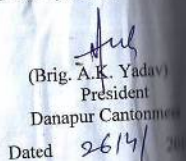 (Brig. A.K. Yadav)
President
Danapur Cantonm
Dated 26/4/